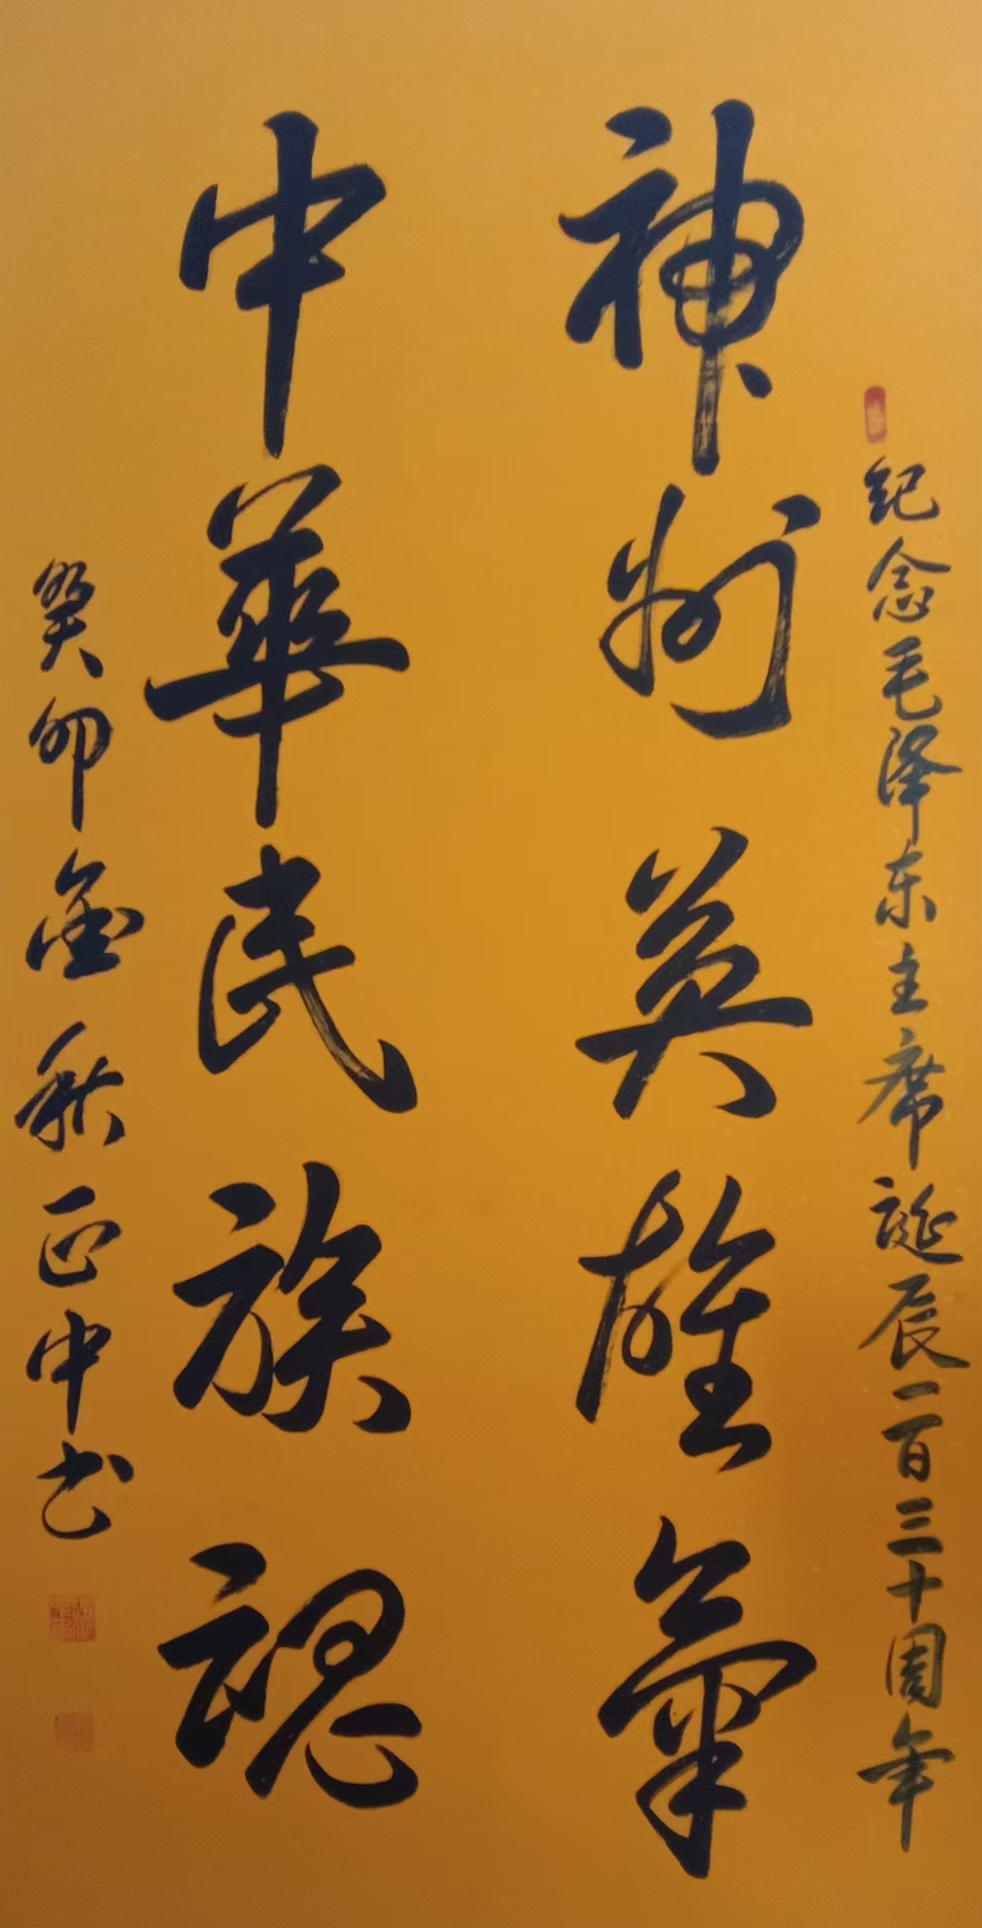 纪念毛泽东主席诞辰一百三十周年
神州英雄氣
中華民族魂
癸卯金秋正中书